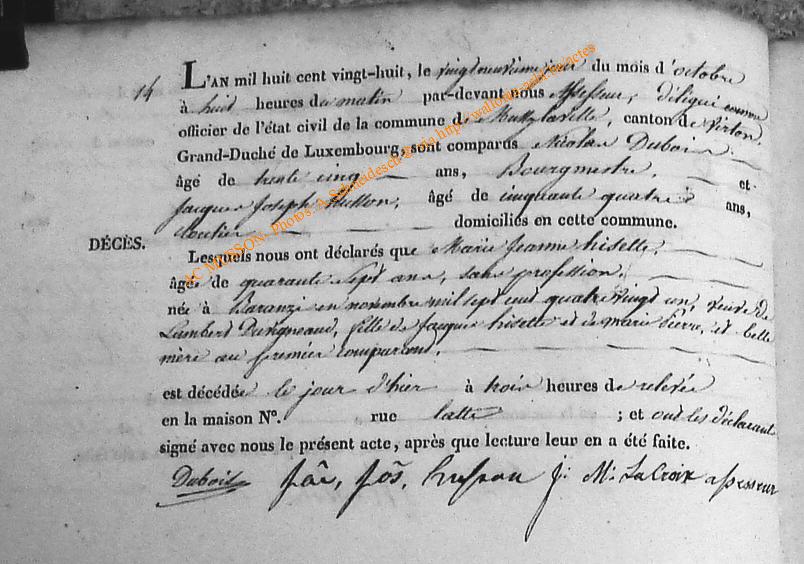 14
L'AN mil huit cent vingt-huit, le vingt neuvième jour du mois d'octobre
à huit heures du matin par-devant nous Assesseur, délégué comme
officier de l'état civil de la commune de canton de Virton,
Grand-Duché de Luxembourg, sont comparus Nicolas Dubois
âgé de trente cinq ans, Bourgmestre, et
Jacques Joseph Husson, âgé de cinquante quatre ans,
cloutier domiciliés en cette commune.
DÉCÈS.
Lesquels nous ont déclarés que Marie Jeanne hisette,
âgée de quarante sept ans, sans profession,
née à Baranzi en novembre mil sept cent quatre vingt un, veuve de
Lambert fille de Jacques hisette et de marie Pierre, et belle
mère au premier comparant,
est décédée le jour d'hier à trois heures de relevée
en la maison N°. rue latte ; et ont les déclarants
signé avec nous le présent acte, après que lecture leur en a été faite.
Dubois jâc, jos, husson j: M. LaCroix assesseur
AC MUSSON- Photos: A. Schneidesch - via http://wallonia-asbl.be/actes